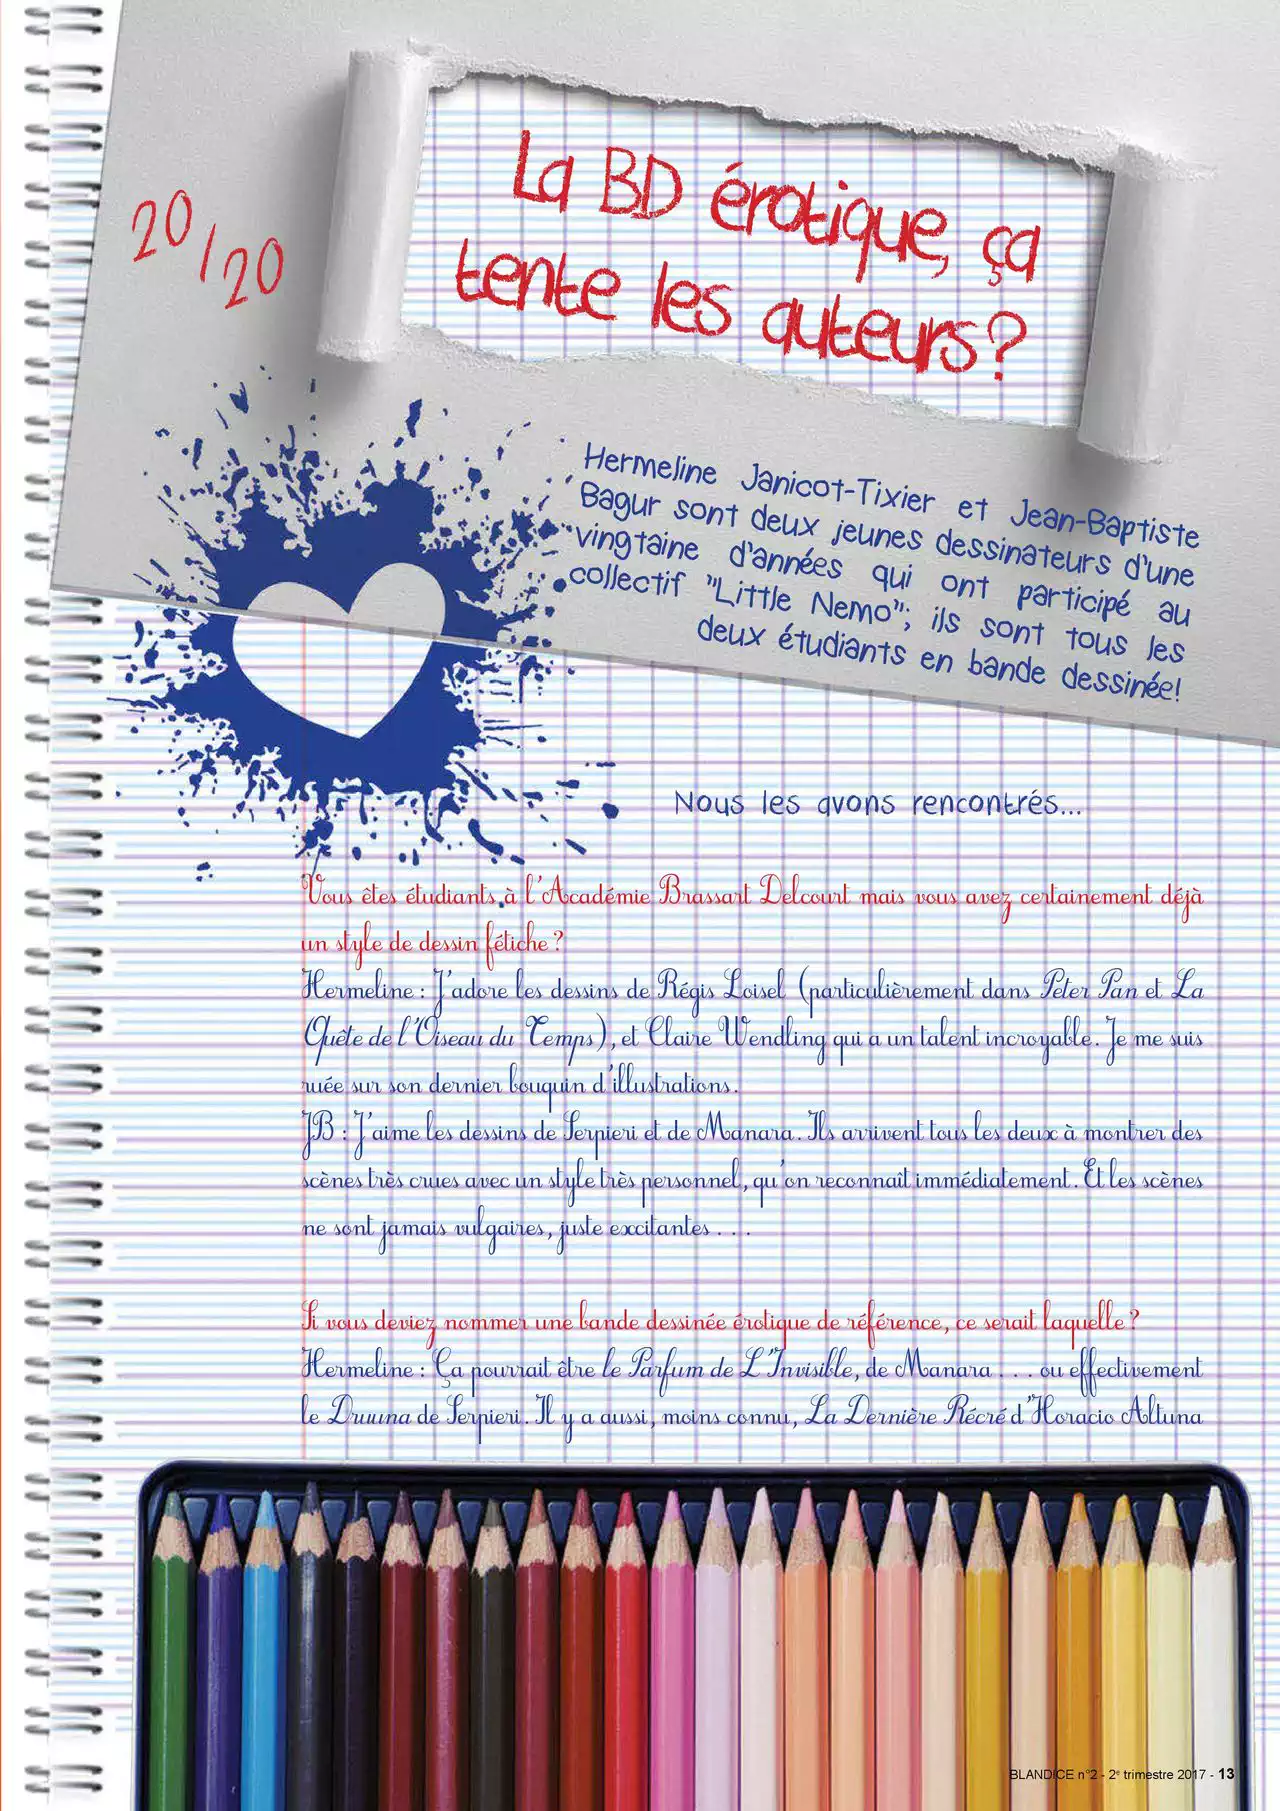 La BD érotique, ça
tente les auteurs?
20/20
Hermeline Janicot-Tixier et Jean-Baptiste
Bagur sont deux jeunes dessinateurs d'une
vingtaine d'années qui ont participé au
collectif "Little Nemo"; ils sont tous les
deux étudiants en bande dessinée!
Nous les avons rencontrés...
Vous êtes étudiants à l'Académie Brassart Delcourt mais vous avez certainement déjà
un style de dessin fétiche ?
Hermeline : J'adore les dessins de Régis Loisel (particulièrement dans Peter Pan et La
Quête de l'Oiseau du Temps), et Claire Wendling qui a un talent incroyable. Je me suis
ruée sur son dernier bouquin d'illustrations.
JB : J'aime les dessins de Serpieri et de Manara. Ils arrivent tous les deux à montrer des
scènes très crues avec un style très personnel, qu'on reconnaît immédiatement. Et les scènes
ne sont jamais vulgaires, juste excitantes . . .
Si vous deviez nommer une bande dessinée érotique de référence, ce serait laquelle ?
Hermeline : Ça pourrait être le Parfum de L'Invisible, de Manara . . . ou effectivement
le Druuna de Serpieri. Il y a aussi, moins connu, La Dernière Récré d'Horacio Altuna
BLANDICE n°2 - 2e trimestre 2017 - 13